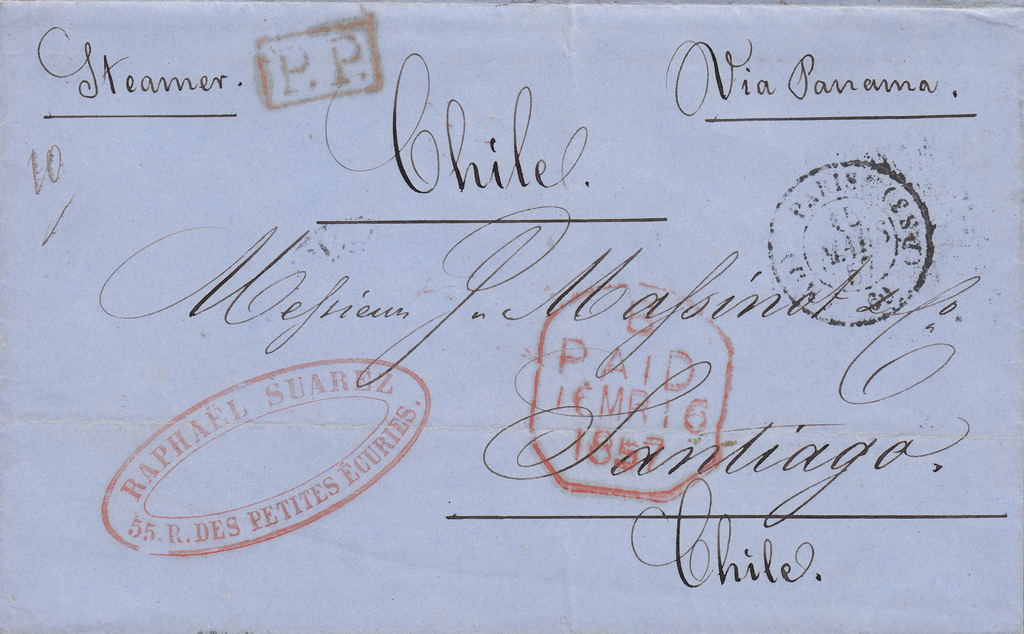 P. P.
Steamer.
Via Panama.
Chile.
10
PARIS
MARS
57
Messieurs J. Massinot & Co.
B
PAID
16 MR 16
1857
RAPHAËL SUAREZ
55. R. DES PETITES ÉCURIES.
Santiago.
Chile.